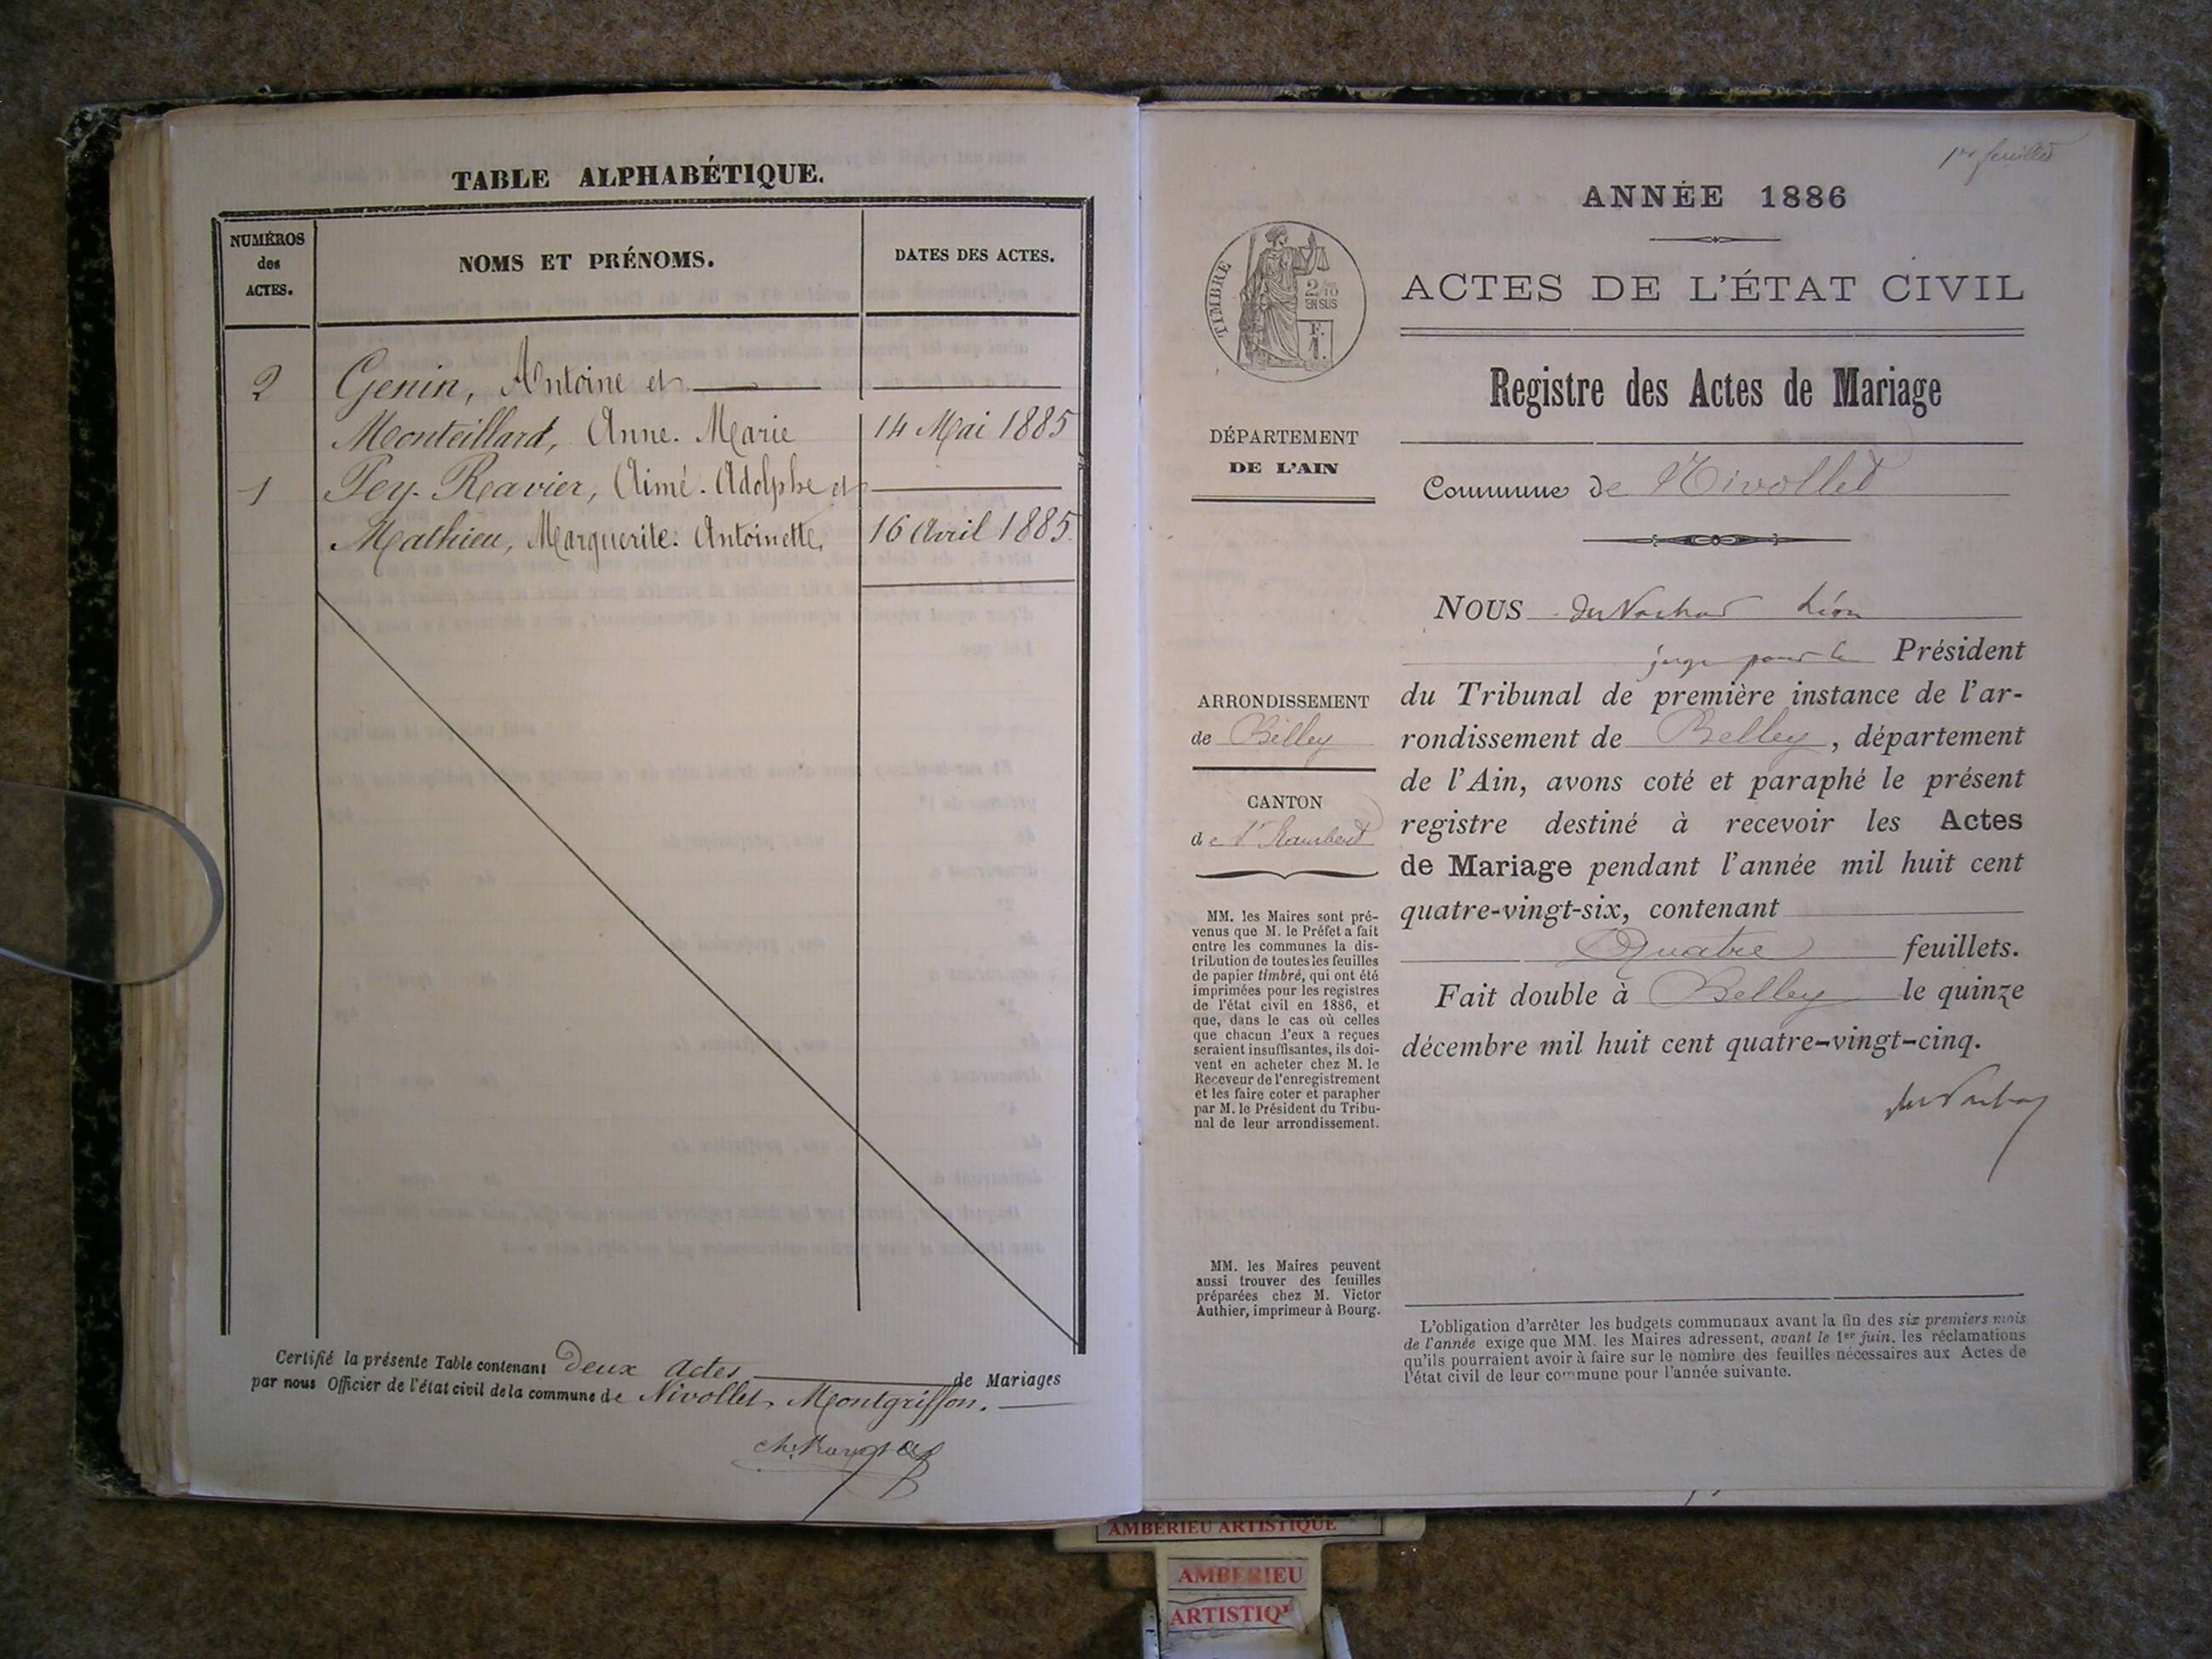 TABLE ALPHABÉTIQUE.
NUMÉROS
des
ACTES.
NOMS ET PRÉNOMS.
DATES DES ACTES.
2 Genin, Antoine et
Monteillard, Anne. Marie 14 Mai 1885
1 Pey. Ravier, Aimé. Adolphe et
Mathieu, Marguerite. Antoinette, 16 Avril 1885.
Certifié la présente Table contenant Deux Actes de Mariages
par nous Officier de l'état civil de la commune de Nivollet, Montgriffon.
1er feuillet
ANNÉE 1886
TIMBRE
2/10
EN SUS
F.
1.
ACTES DE L'ÉTAT CIVIL
Registre des Actes de Mariage
DÉPARTEMENT
DE L'AIN
Commune de Nivollet
NOUS Léon
juge pour le Président
du Tribunal de première instance de l'ar-
rondissement de Belley, département
de l'Ain, avons coté et paraphé le présent
registre destiné à recevoir les Actes
de Mariage pendant l'année mil huit cent
quatre-vingt-six, contenant
Quatre feuillets.
Fait double à Belley le quinze
décembre mil huit cent quatre-vingt-cinq.
ARRONDISSEMENT
de Belley
CANTON
de St Rambert
MM. les Maires sont pré-
venus que M. le Préfet a fait
entre les communes la dis-
tribution de toutes les feuilles
de papier timbré, qui ont été
imprimées pour les registres
de l'état civil en 1886, et
que, dans le cas où celles
que chacun d'eux a reçues
seraient insuffisantes, ils doi-
vent en acheter chez M. le
Receveur de l'enregistrement
et les faire coter et parapher
par M. le Président du Tribu-
nal de leur arrondissement.
MM. les Maires peuvent
aussi trouver des feuilles
préparées chez M. Victor
Authier, imprimeur à Bourg.
L'obligation d'arrêter les budgets communaux avant la fin des six premiers mois
de l'année exige que MM. les Maires adressent, avant le 1er juin, les réclamations
qu'ils pourraient avoir à faire sur le nombre des feuilles nécessaires aux Actes de
l'état civil de leur commune pour l'année suivante.
AMBERIEU ARTISTIQUE
AMBERIEU
ARTISTIQU